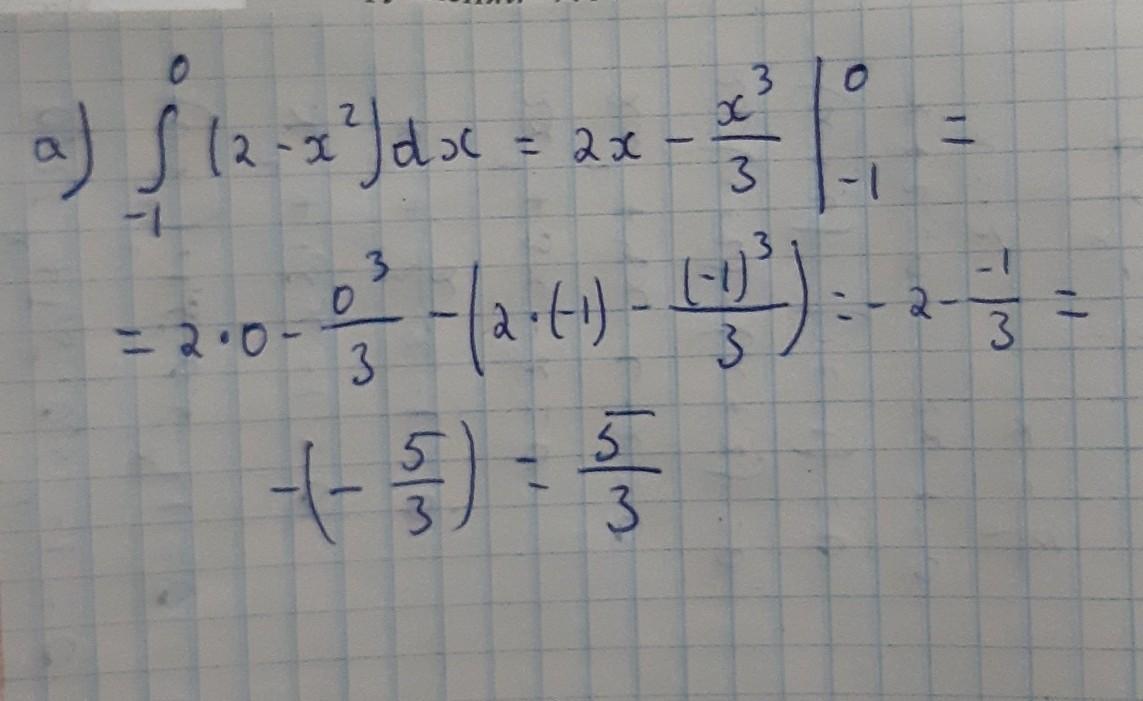 a) ∫₋₁⁰ (2 - x²)dx = 2x - x³/3 |₋₁⁰ =
= 2·0 - 0³/3 - (2·(-1) - (-1)³/3) = - 2 - -1/3 =
-(- 5/3) = 5/3